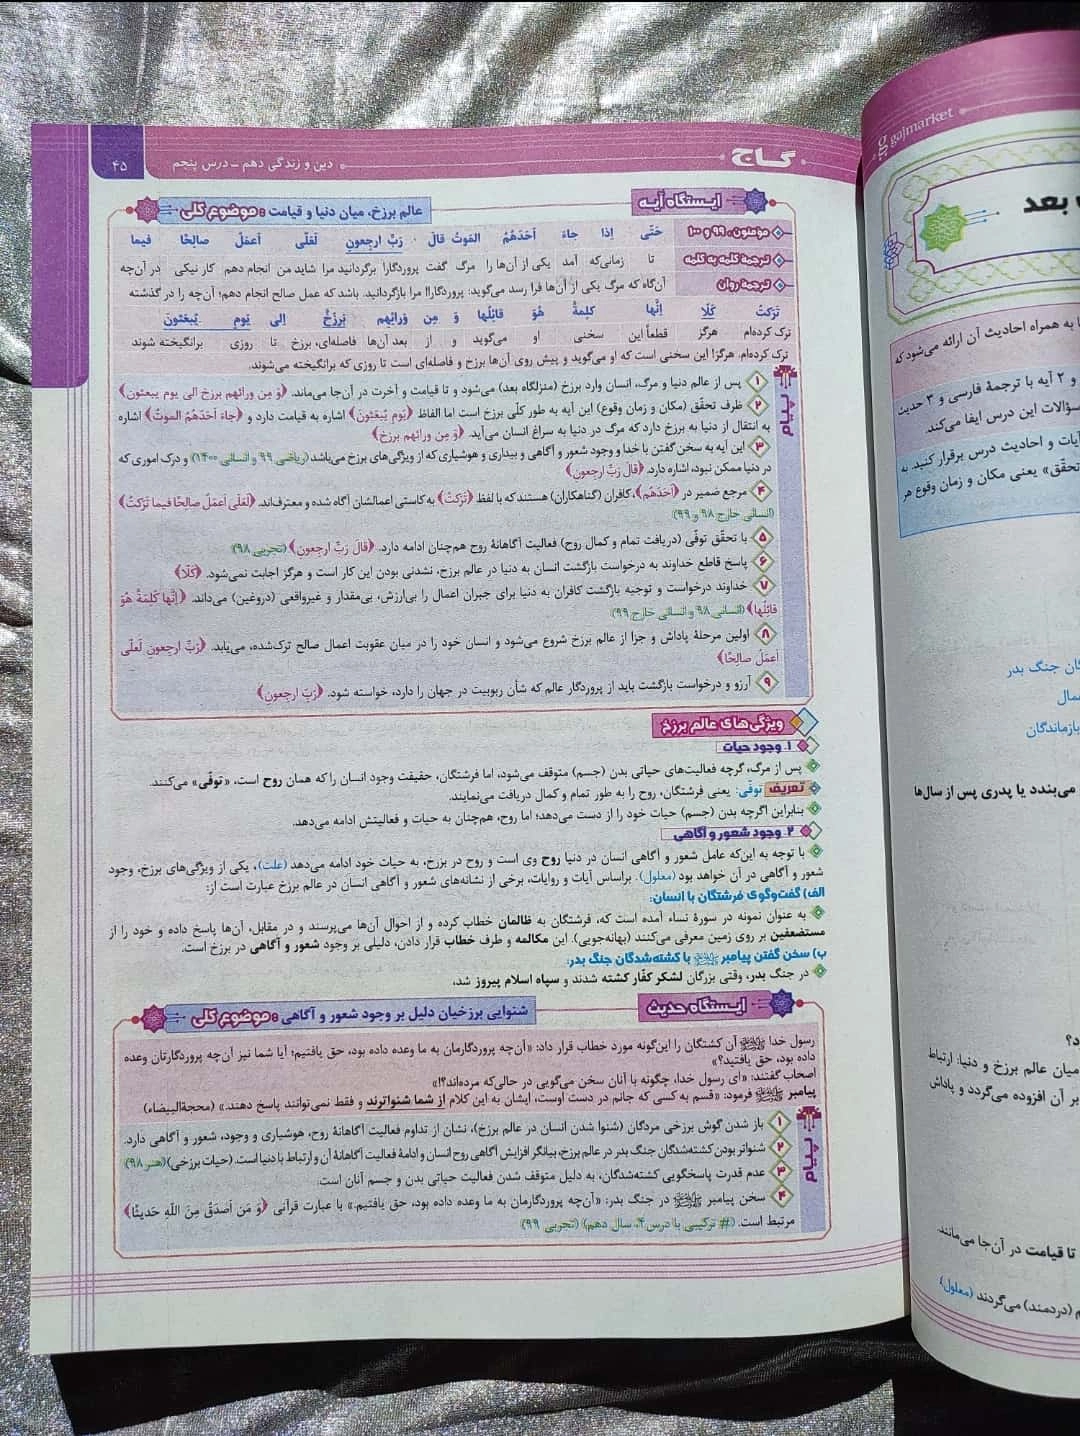 گاج
دین و زندگی دهم - درس پنجم
۴۵
ایستگاه آیه
موضوع کلی: عالم برزخ، میان دنیا و قیامت
مؤمنون، ۹۹ و ۱۰۰
حَتّی إذا جاءَ أحَدَهُمُ المَوتُ قالَ رَبِّ ارجِعونِ لَعَلّی أعمَلُ صالِحًا فیما
ترجمهٔ کلمه به کلمه
تا زمانی‌که آمد یکی از آن‌ها را مرگ گفت پروردگارا برگردانید مرا شاید من انجام دهم کار نیکی در آن‌چه
ترجمهٔ روان
آن‌گاه که مرگ یکی از آن‌ها فرا رسد می‌گوید: پروردگارا! مرا بازگردانید. باشد که عمل صالح انجام دهم؛ آن‌چه را در گذشته
تَرَکتُ کَلّا إنَّها کلِمةٌ هُوَ قائلُها وَ مِن وَرائِهِم بَرزَخٌ إلی یَومِ یُبعَثونَ
ترک کرده‌ام هرگز قطعاً این سخنی او می‌گوید و از بعد آن‌ها فاصله‌ای، برزخ تا روزی برانگیخته شوند
ترک کرده‌ام. هرگز! این سخنی است که او می‌گوید و پیش روی آن‌ها برزخ و فاصله‌ای است تا روزی که برانگیخته می‌شوند.
پیام
۱ پس از عالم دنیا و مرگ، انسان وارد برزخ (منزلگاه بعد) می‌شود و تا قیامت و آخرت در آن‌جا می‌ماند. ﴿وَ مِن ورائهم برزخ الی یوم یبعثون﴾
۲ ظرف تحقّق (مکان و زمان وقوع) این آیه به طور کلّی برزخ است اما الفاظ ﴿یَومِ یُبعَثونَ﴾ اشاره به قیامت دارد و ﴿جاءَ أحَدَهُمُ الموتُ﴾ اشاره
به انتقال از دنیا به برزخ دارد که مرگ در دنیا به سراغ انسان می‌آید. ﴿وَ مِن ورائهم برزخ﴾
۳ این آیه به سخن گفتن با خدا و وجود شعور و آگاهی و بیداری و هوشیاری که از ویژگی‌های برزخ می‌باشد (ریاضی ۹۹ و انسانی ۱۴۰۰) و درک اموری که
در دنیا ممکن نبود، اشاره دارد. ﴿قالَ رَبِّ ارجعون﴾
۴ مرجع ضمیر در ﴿أحَدَهُم﴾، کافران (گناهکاران) هستند که با لفظ ﴿تَرَکتُ﴾ به کاستی اعمالشان آگاه شده و معترف‌اند. ﴿لَعَلّی أعمَلُ صالِحًا فیما تَرَکتُ﴾
(انسانی خارج ۹۸ و ۹۹)
۵ با تحقّق توفّی (دریافت تمام و کمال روح) فعالیت آگاهانهٔ روح هم‌چنان ادامه دارد. ﴿قالَ رَبِّ ارجعون﴾ (تجربی ۹۸)
۶ پاسخ قاطع خداوند به درخواست بازگشت انسان به دنیا در عالم برزخ، نشدنی بودن این کار است و هرگز اجابت نمی‌شود. ﴿کَلّا﴾
۷ خداوند درخواست و توجیه بازگشت کافران به دنیا برای جبران اعمال را بی‌ارزش، بی‌مقدار و غیرواقعی (دروغین) می‌داند. ﴿إنَّها کَلِمَةٌ هُوَ
قائلُها﴾ (انسانی ۹۸ و انسانی خارج ۹۹)
۸ اولین مرحلهٔ پاداش و جزا از عالم برزخ شروع می‌شود و انسان خود را در میان عقوبت اعمال صالح ترک‌شده، می‌یابد. ﴿رَبِّ ارجعونِ لَعلّی
أعمَلُ صالِحًا﴾
۹ آرزو و درخواست بازگشت باید از پروردگار عالم که شأن ربوبیت در جهان را دارد، خواسته شود. ﴿رَبِّ ارجعونِ﴾
ویژگی‌های عالم برزخ
۱. وجود حیات
پس از مرگ، گرچه فعالیت‌های حیاتی بدن (جسم) متوقف می‌شود، اما فرشتگان، حقیقت وجود انسان را که همان روح است، «توفّی» می‌کنند.
تعریف توفّی: یعنی فرشتگان، روح را به طور تمام و کمال دریافت می‌نمایند.
بنابراین اگرچه بدن (جسم) حیات خود را از دست می‌دهد؛ اما روح، هم‌چنان به حیات و فعالیتش ادامه می‌دهد.
۲. وجود شعور و آگاهی
با توجه به این‌که عامل شعور و آگاهی انسان در دنیا روح وی است و روح در برزخ، به حیات خود ادامه می‌دهد (علت)، یکی از ویژگی‌های برزخ، وجود
شعور و آگاهی در آن خواهد بود (معلول). براساس آیات و روایات، برخی از نشانه‌های شعور و آگاهی انسان در عالم برزخ عبارت است از:
الف) گفت‌وگوی فرشتگان با انسان:
به عنوان نمونه در سورهٔ نساء آمده است که، فرشتگان به ظالمان خطاب کرده و از احوال آن‌ها می‌پرسند و در مقابل، آن‌ها پاسخ داده و خود را از
مستضعفین بر روی زمین معرفی می‌کنند (بهانه‌جویی). این مکالمه و طرف خطاب قرار دادن، دلیلی بر وجود شعور و آگاهی در برزخ است.
ب) سخن گفتن پیامبر ﷺ با کشته‌شدگان جنگ بدر:
در جنگ بدر، وقتی بزرگان لشکر کفّار کشته شدند و سپاه اسلام پیروز شد،
ایستگاه حدیث
موضوع کلی: شنوایی برزخیان دلیل بر وجود شعور و آگاهی
رسول خدا ﷺ آن کشتگان را این‌گونه مورد خطاب قرار داد: «آن‌چه پروردگارمان به ما وعده داده بود، حق یافتیم؛ آیا شما نیز آن‌چه پروردگارتان وعده
داده بود، حق یافتید؟»
اصحاب گفتند: «ای رسول خدا، چگونه با آنان سخن می‌گویی در حالی‌که مرده‌اند؟!»
پیامبر ﷺ فرمود: «قسم به کسی که جانم در دست اوست، ایشان به این کلام از شما شنواترند و فقط نمی‌توانند پاسخ دهند.» (محجةالبیضاء)
پیام
۱ باز شدن گوش برزخی مردگان (شنوا شدن انسان در عالم برزخ)، نشان از تداوم فعالیت آگاهانهٔ روح، هوشیاری و وجود، شعور و آگاهی دارد.
۲ شنواتر بودن کشته‌شدگان جنگ بدر در عالم برزخ، بیانگر افزایش آگاهی روح انسان و ادامهٔ فعالیت آگاهانهٔ آن و ارتباط با دنیا است. (حیات برزخی) (هنر ۹۸)
۳ عدم قدرت پاسخگویی کشته‌شدگان، به دلیل متوقف شدن فعالیت حیاتی بدن و جسم آنان است.
۴ سخن پیامبر ﷺ در جنگ بدر: «آن‌چه پروردگارمان به ما وعده داده بود، حق یافتیم.» با عبارت قرآنی ﴿وَ مَن أصدَقُ مِنَ اللّهِ حَدیثًا﴾
مرتبط است. (# ترکیبی با درس ۴، سال دهم) (تجربی ۹۹)
gajmarket
بعد
ا به همراه احادیث آن ارائه می‌شود که
و ۲ آیه با ترجمهٔ فارسی و ۳ حدیث
سؤالات این درس ایفا می‌کند.
آیات و احادیث درس برقرار کنید. به
تحقّق» یعنی مکان و زمان وقوع هر
گان جنگ بدر
مال
بازماندگان
می‌بندد یا پدری پس از سال‌ها
د؟
میان عالم برزخ و دنیا: ارتباط
بر آن افزوده می‌گردد و پاداش
تا قیامت در آن‌جا می‌مانند.
م (دردمند) می‌گردند (معلول)